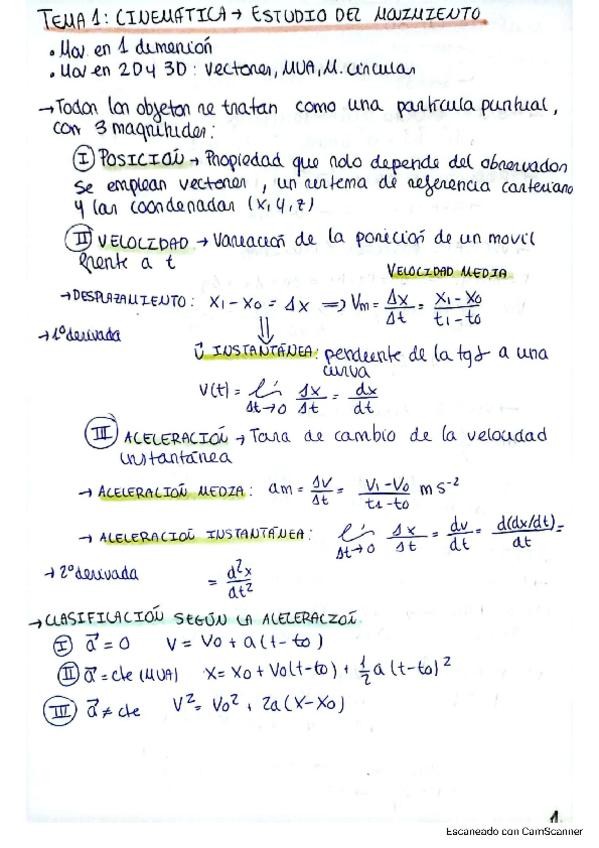 TEMA 1: CINEMÁTICA → ESTUDIO DEL MOVIMIENTO
• Mov. en 1 dimensión
• Mov en 2D y 3D: vectores, MUA, M. circular
→ Todos los objetos se tratan como una partícula puntual,
con 3 magnitudes:
I POSICIÓN → Propiedad que solo depende del observador
se emplean vectores, un sistema de referencia cartesiano
y las coordenadas (x, y, z)
II VELOCIDAD → Variación de la posición de un movil
frente a t
VELOCIDAD MEDIA
→ DESPLAZAMIENTO: x₁ - x₀ = Δx ⇒ Vm = Δx/Δt = x₁-x₀/t₁-t₀
⇓
→ 1º derivada
v⃗ INSTANTÁNEA: pendiente de la tg a una
curva
v(t) = lím Δt→0 Δx/Δt = dx/dt
III ACELERACIÓN → Tasa de cambio de la velocidad
instantánea
→ ACELERACIÓN MEDIA: am = Δv/Δt = V₁-V₀/t₁-t₀ m s⁻²
→ ACELERACIÓN INSTANTÁNEA: lím Δt→0 Δx/Δt = dv/dt = d(dx/dt)/dt =
→ 2º derivada
= d²x/dt²
→ CLASIFICACIÓN SEGÚN LA ACELERACIÓN
I a⃗ = 0 V = V₀ + a(t - t₀)
II a⃗ = cte (MUA) X = X₀ + V₀(t-t₀) + ½ a (t-t₀)²
III a⃗ ≠ cte V² = V₀² + 2a(X-X₀)
1.
Escaneado con CamScanner